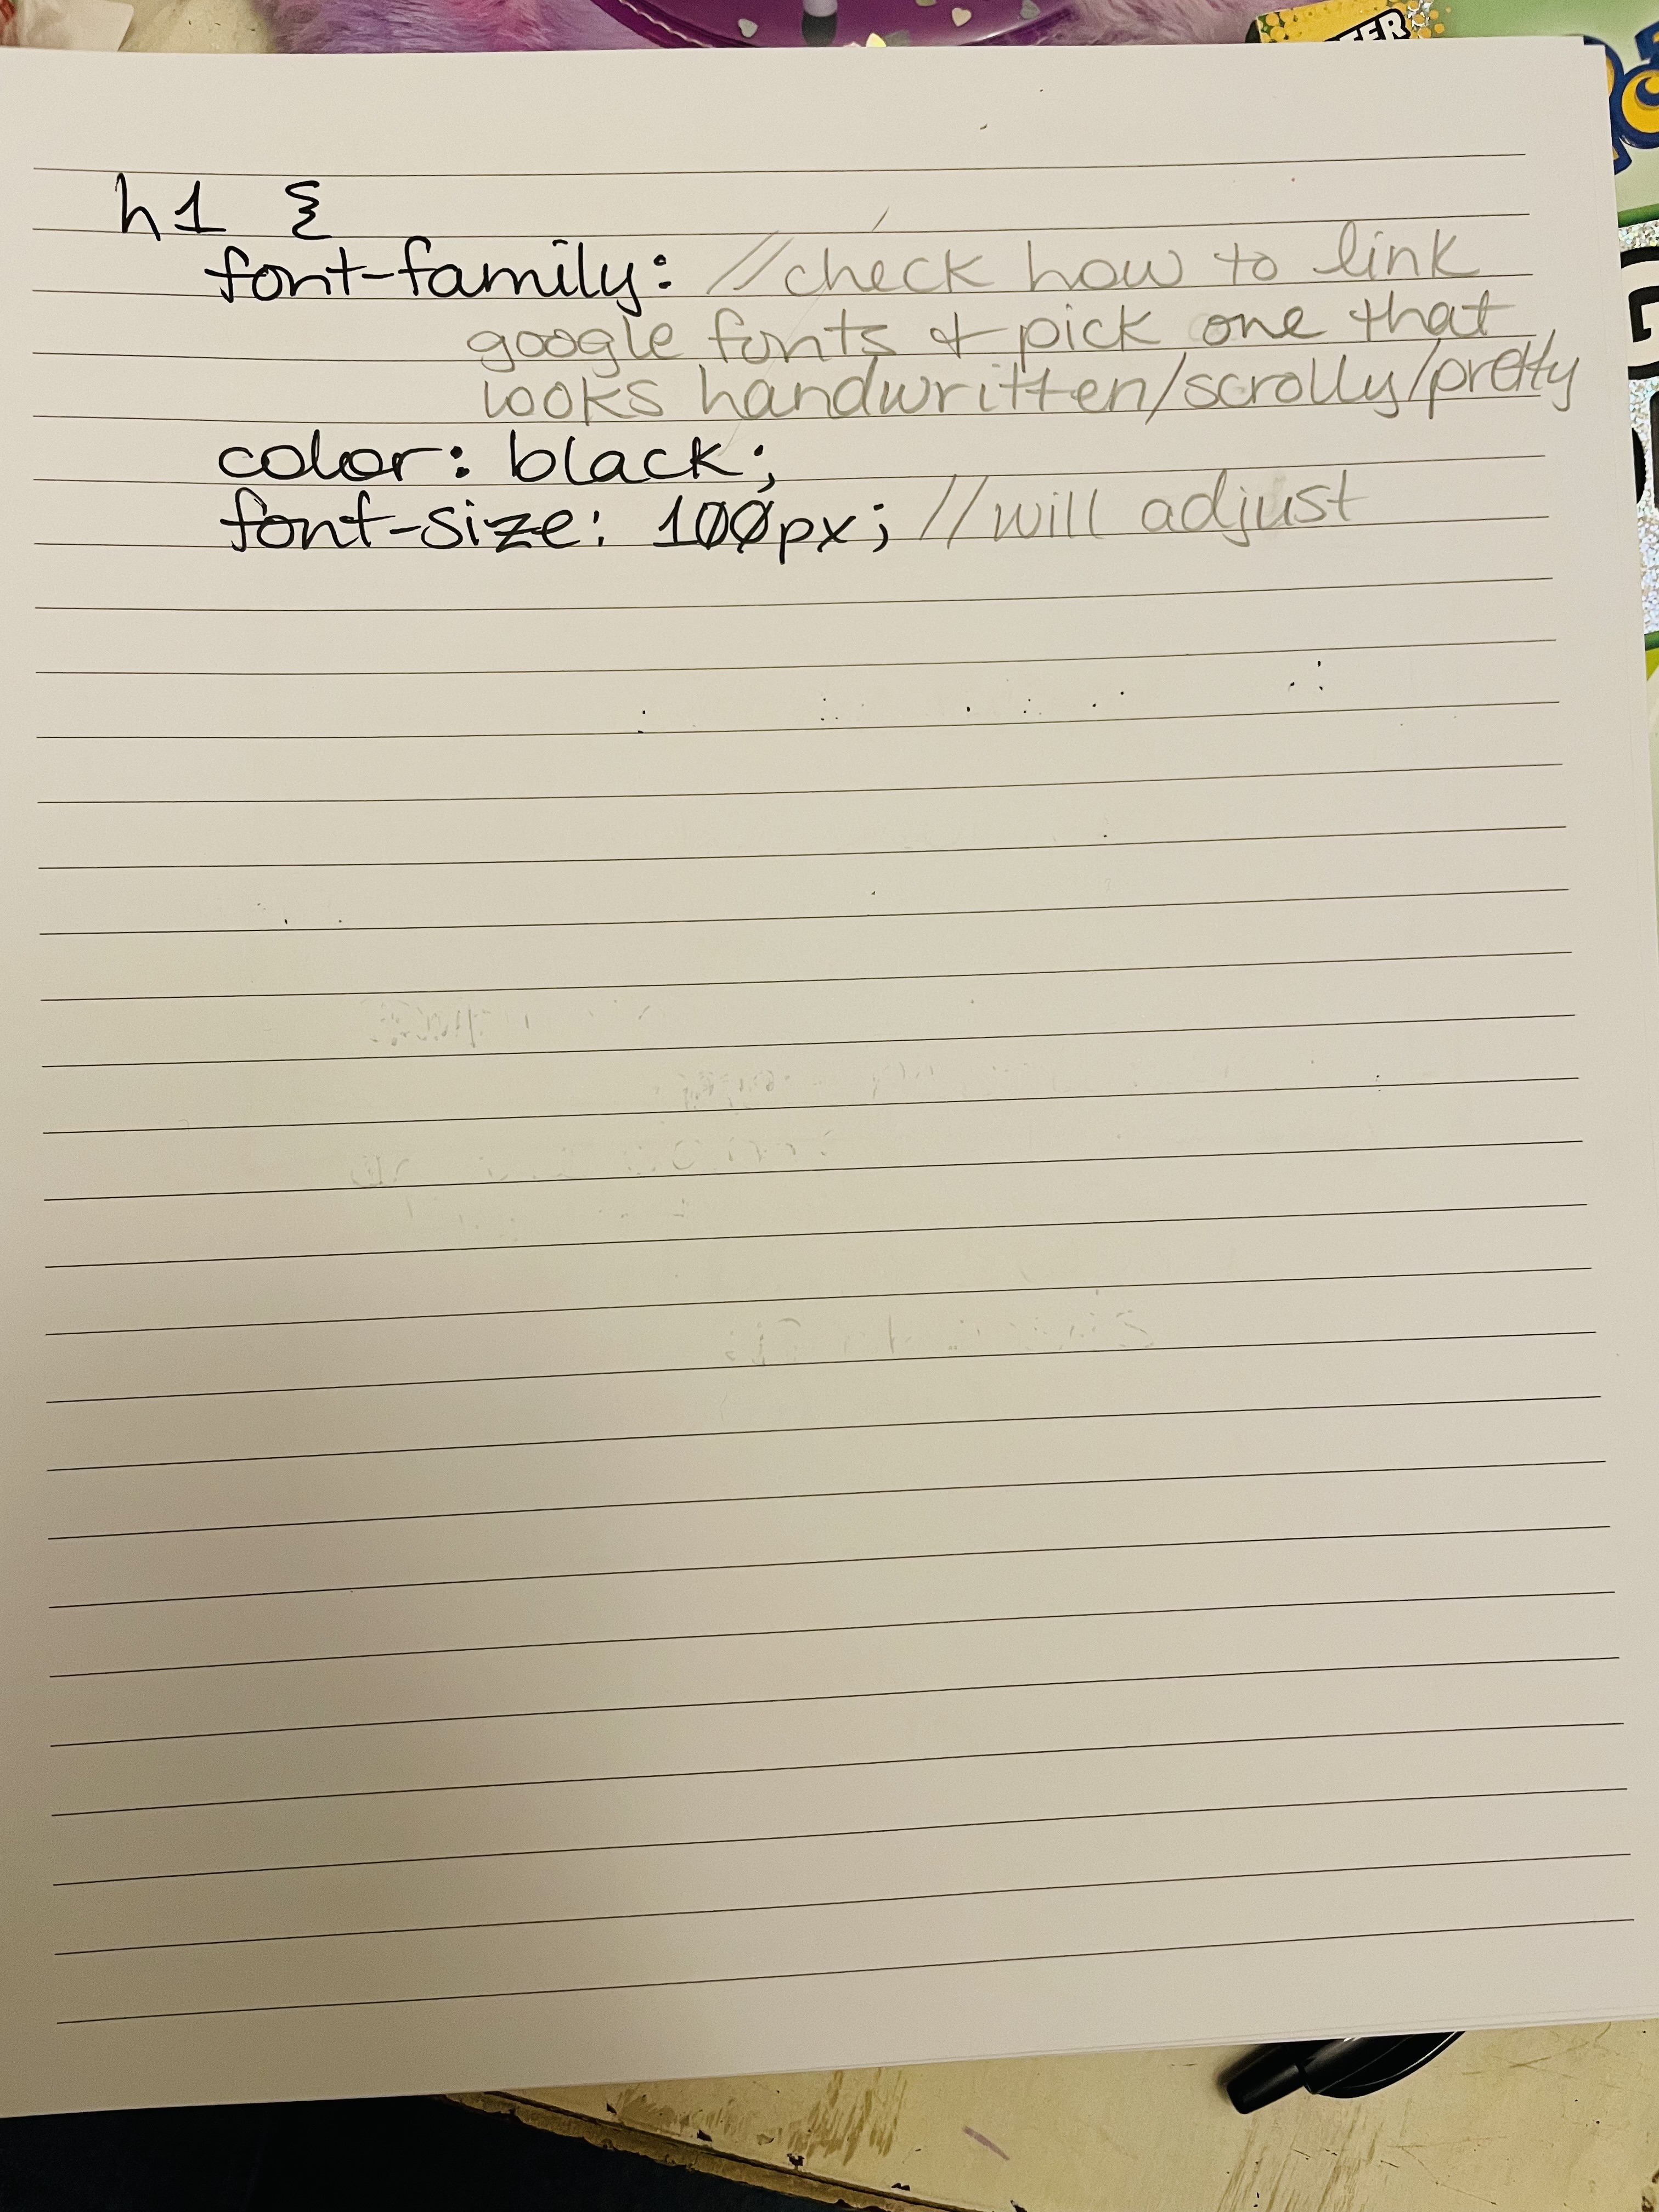 h1 {
font-family: //check how to link
google fonts & pick one that
looks handwritten/scrolly/pretty
color: black;
font-size: 100px; //will adjust